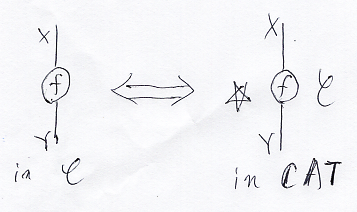 X
f
Y
in C
X
f
C
Y
in CAT